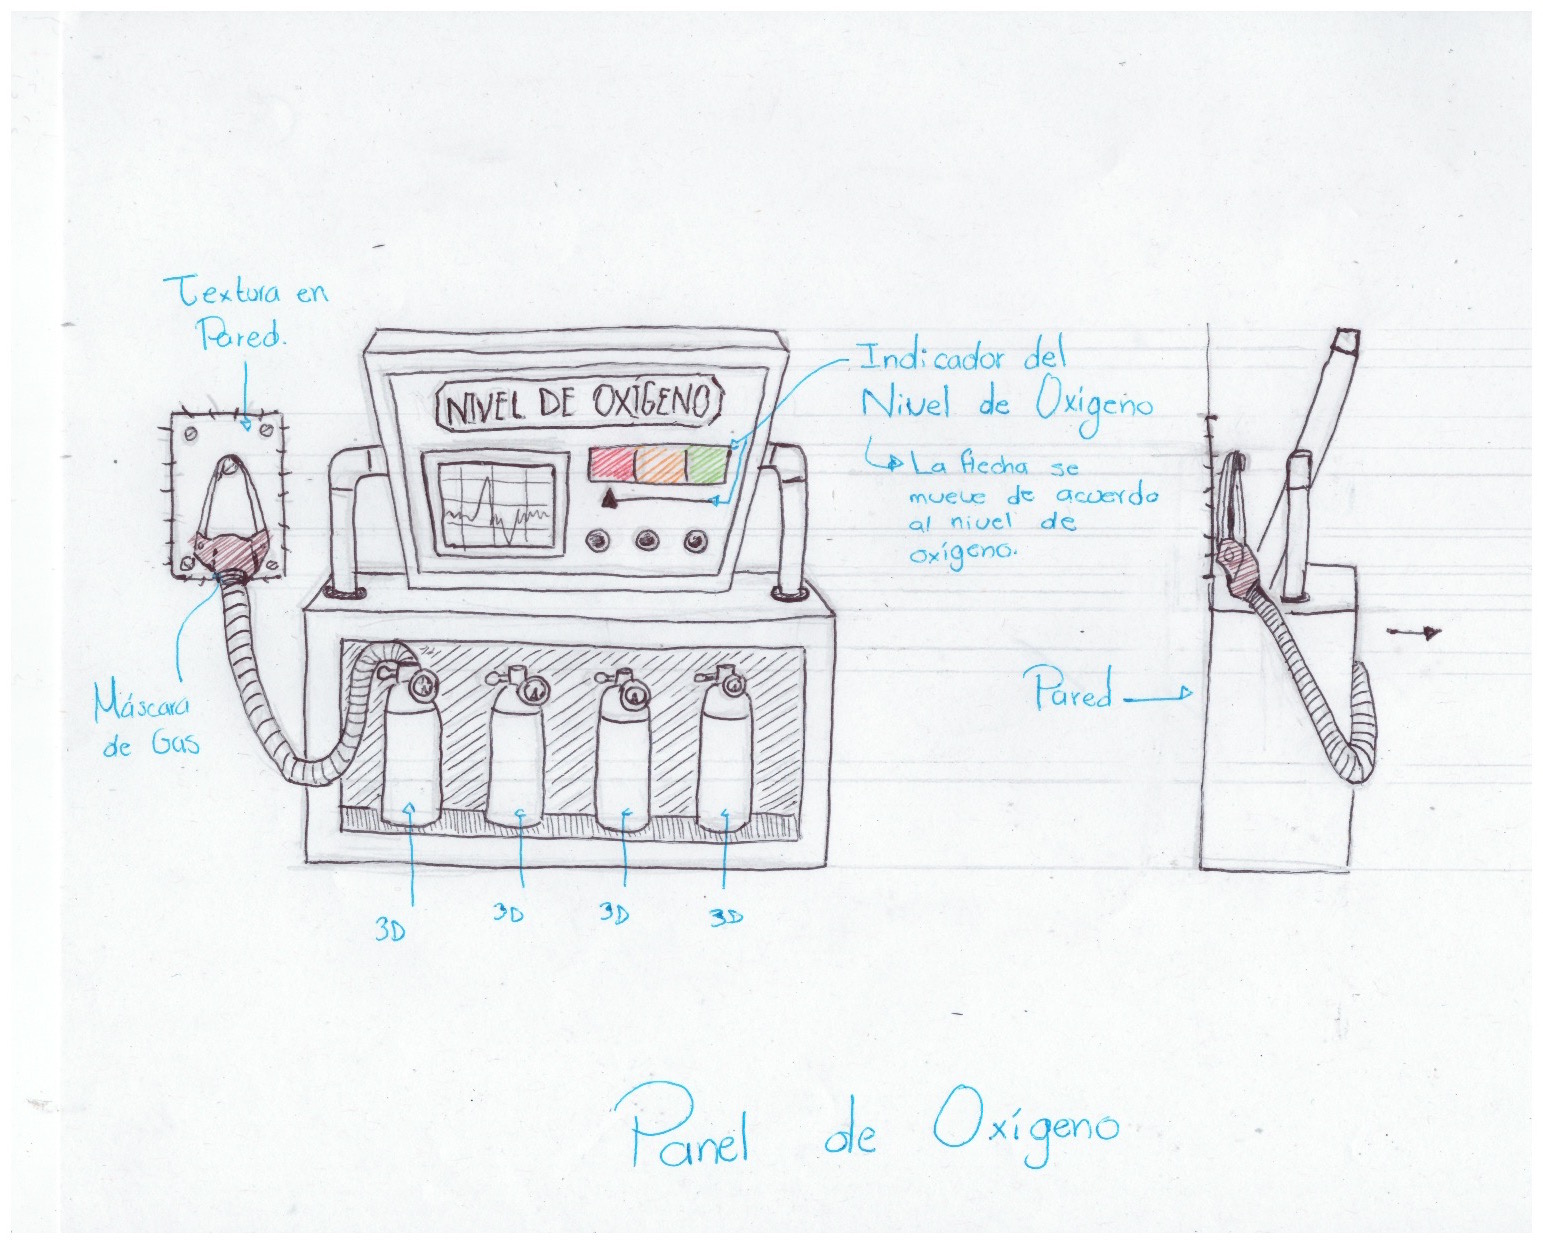 Textura en
Pared.
NIVEL DE OXÍGENO
Indicador del
Nivel de Oxígeno
La flecha se
mueve de acuerdo
al nivel de
oxígeno.
Máscara
de Gas
Pared
3D
3D
3D
3D
Panel de Oxígeno